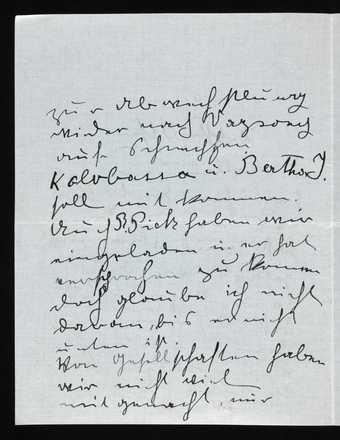 zur Abwechslung
wider nach
auf Schnepfen.
Kalobassa u. Bertha J.
soll mit kommen.
Auch R Pick haben wir
eingeladen u. er hat
versprochen zu kommen
doch glaube ich nicht
daran, bis er nicht
unten ist.
Von Gesellschaften haben
wir nicht viel
mitgemacht, nur